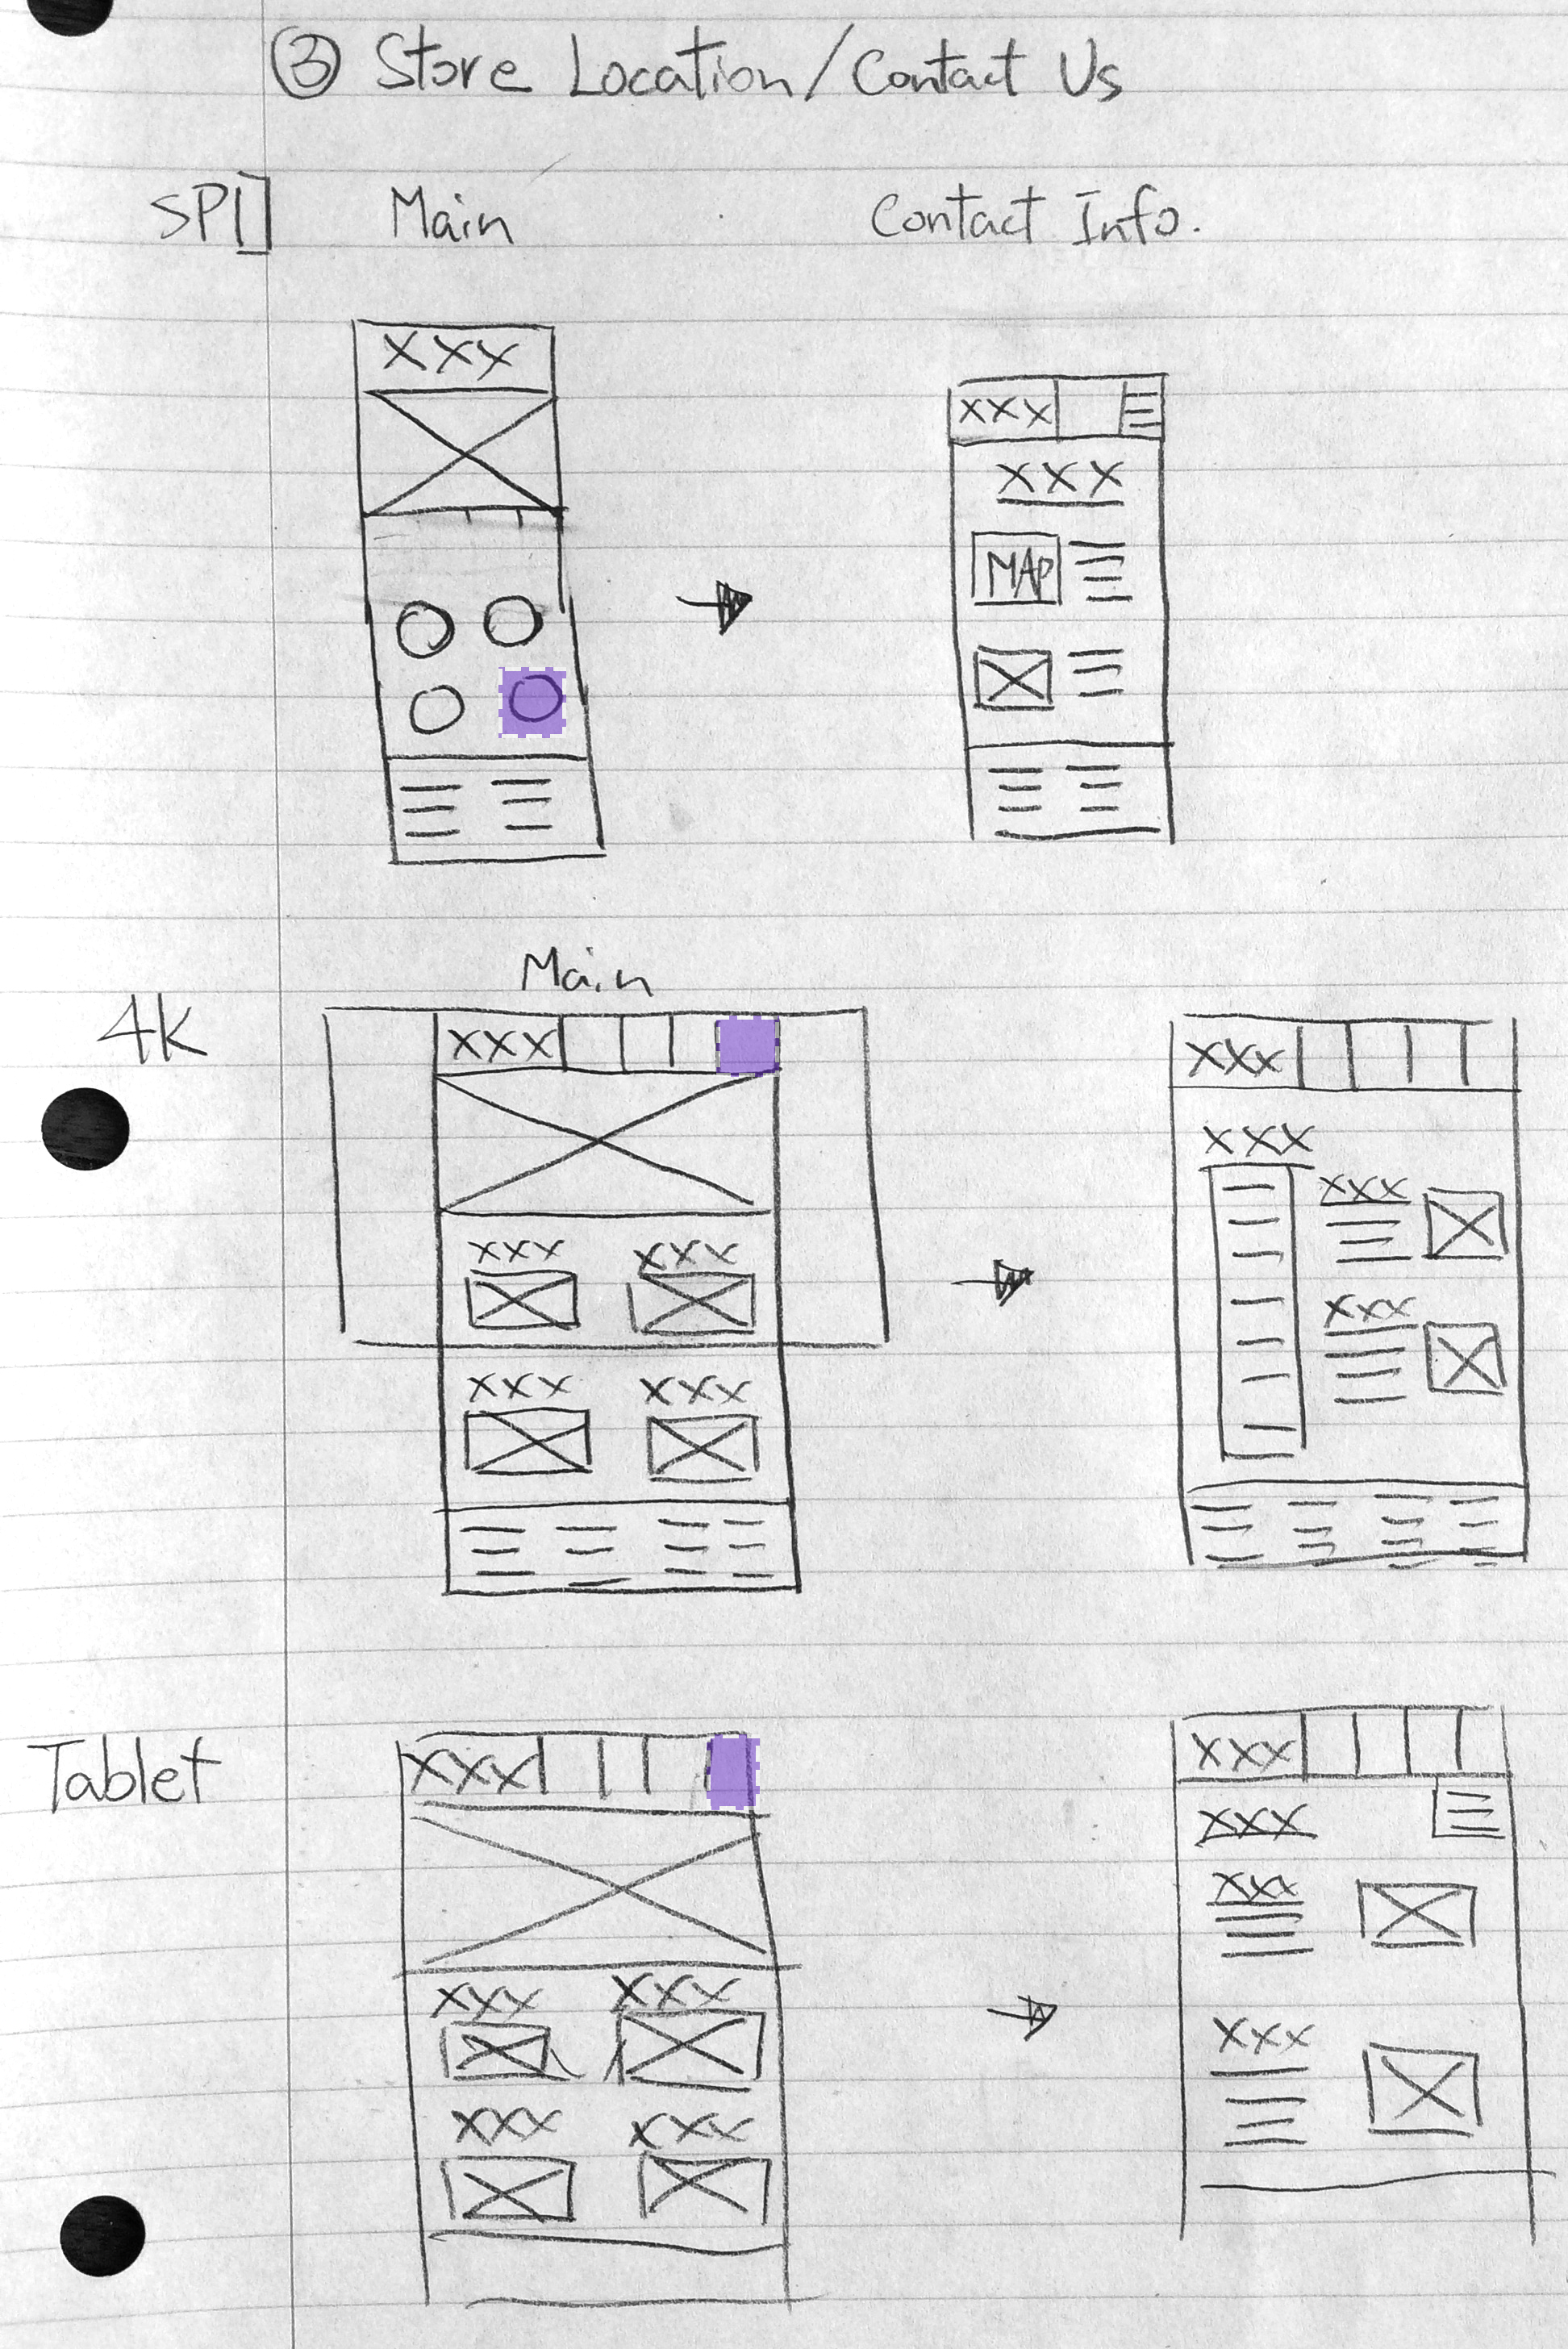 ③ Store Location/Contact Us
SP] Main Contact Info.
XXX
XXX
XXX
MAP
Main
4K
XXX
XXX
XXX
XXX XXX
XXX
XXX
XXX XXX
Tablet
XXX
XXX
XXX
XXX
XXX XXX
XXX
XXX XXX